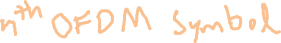 nth OFDM Symbol